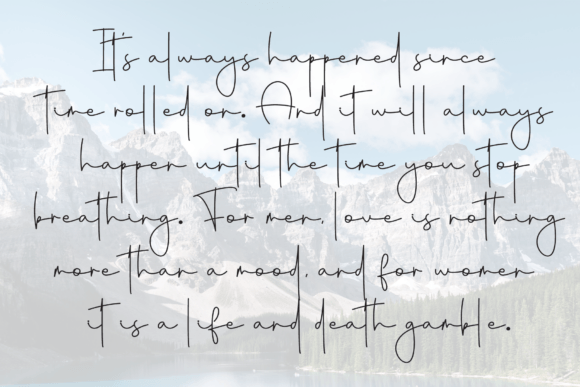 It's always happened since
time rolled on. And it will always
happen until the time you stop
breathing. For men, love is nothing
more than a mood, and for women
it is a life and death gamble.